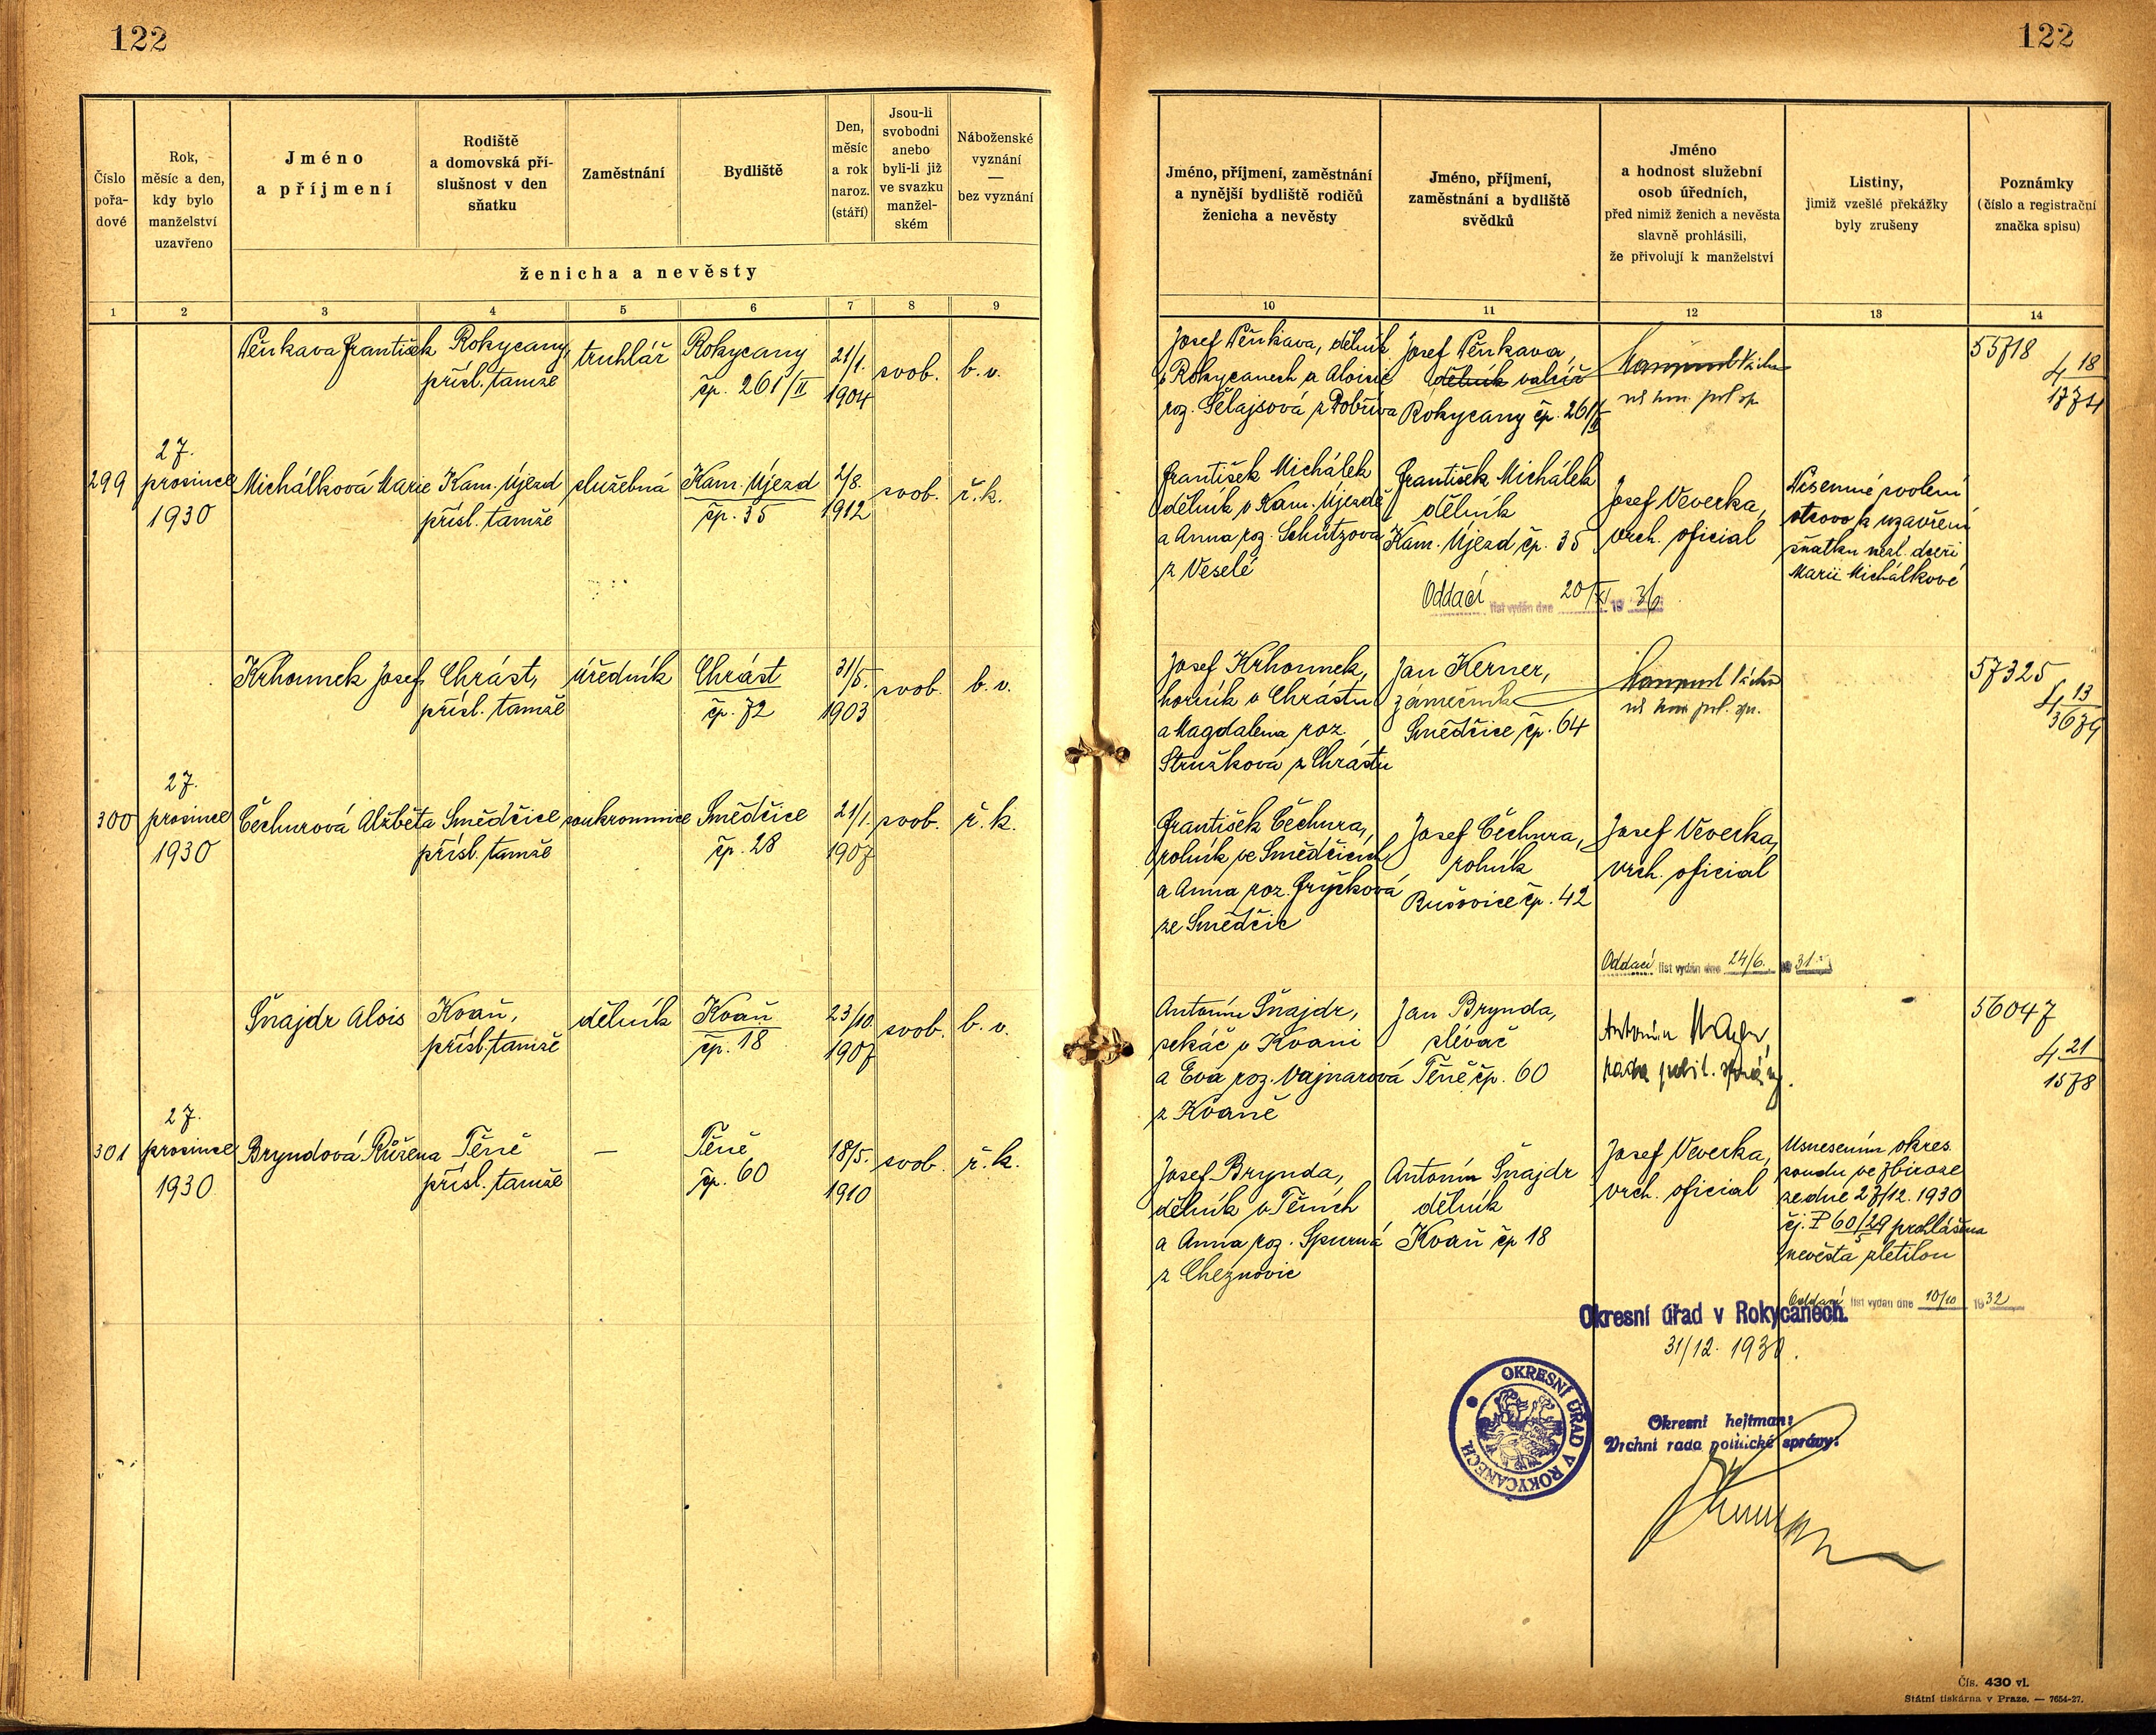 122
122
Číslo
pořa-
dové
Rok,
měsíc a den,
kdy bylo
manželství
uzavřeno
Jméno
a příjmení
Rodiště
a domovská pří-
slušnost v den
sňatku
Zaměstnání
Bydliště
Den,
měsíc
a rok
naroz.
(stáří)
Jsou-li
svobodni
anebo
byli-li již
ve svazku
manžel-
ském
Náboženské
vyznání
—
bez vyznání
ženicha a nevěsty
1 2 3 4 5 6 7 8 9
Jméno, příjmení, zaměstnání
a nynější bydliště rodičů
ženicha a nevěsty
Jméno, příjmení,
zaměstnání a bydliště
svědků
Jméno
a hodnost služební
osob úředních,
před nimiž ženich a nevěsta
slavně prohlásili,
že přivolují k manželství
Listiny,
jimiž vzešlé překážky
byly zrušeny
Poznámky
(číslo a registrační
značka spisu)
10 11 12 13 14
Pěnkava František
Rokycany,
přísl. tamže
truhlář
Rokycany
čp. 261/II
21/1.
1904
svob.
b. v.
Josef Pěnkava, dělník
v Rokycanech a Aloisie
roz. Šelajsová z Dobříva
Josef Pěnkava,
dělník valcíř
Rokycany čp. 261/II
55718
4 18
1774
299
27.
prosince
1930
Michálková Marie
Kam. Újezd
přísl. tamže
služebná
Kam. Újezd
čp. 35
2/8.
1912
svob.
ř. k.
František Michálek
dělník v Kam. Újezdě
a Anna roz. Schützová
z Veselé
František Michálek
dělník
Kam. Újezd čp. 35
Josef Veverka,
vrch. oficial
Písemné svolení
otcovo k uzavření
sňatku nezl. dceři
Marii Michálkové
Oddací list vydán dne 20/XI 1936
Krhounek Josef
Chrást,
přísl. tamže
úředník
Chrást
čp. 72
31/5.
1903
svob.
b. v.
Josef Krhounek,
horník v Chrástu
a Magdalena roz.
Stružková z Chrástu
Jan Kerner,
zámečník
Smědčice čp. 64
57325
4 13
3679
300
27.
prosince
1930
Čechurová Alžběta
Smědčice
přísl. tamže
soukromnice
Smědčice
čp. 28
21/1.
1907
svob.
ř. k.
František Čechura,
rolník ve Smědčicích
a Anna roz. Fryčková
ze Smědčic
Josef Čechura,
rolník
Bušovice čp. 42
Josef Veverka,
vrch. oficial
Oddací list vydán dne 24/6. 1931
Šnajdr Alois
Kvaň,
přísl. tamže
dělník
Kvaň
čp. 18
23/10
1907
svob.
b. v.
Antonín Šnajdr,
sekáč v Kvani
a Eva roz. Vajnarová
z Kvaně
Jan Brynda,
slévač
Těně čp. 60
Antonín
rada polit. správy.
56047
4 21
1578
301
27.
prosince
1930
Bryndová Růžena
Těně
přísl. tamže
—
Těně
čp. 60
18/5.
1910
svob.
ř. k.
Josef Brynda,
dělník v Těních
a Anna roz. Spurná
z Cheznovic
Antonín Šnajdr
dělník
Kvaň čp 18
Josef Veverka,
vrch. oficial
Usnesením okres.
soudu ve Zbiroze
ze dne 27/12. 1930
čj. P 60/29 prohlášena
nevěsta zletilou
Oddací list vydán dne 10/10 1932
Okresní úřad v Rokycanech.
31/12. 1930.
OKRESNÍ ÚŘAD V ROKYCANECH
Okresní hejtman:
Vrchní rada politické správy:
Čís. 430 vl.
Státní tiskárna v Praze. — 7654-27.